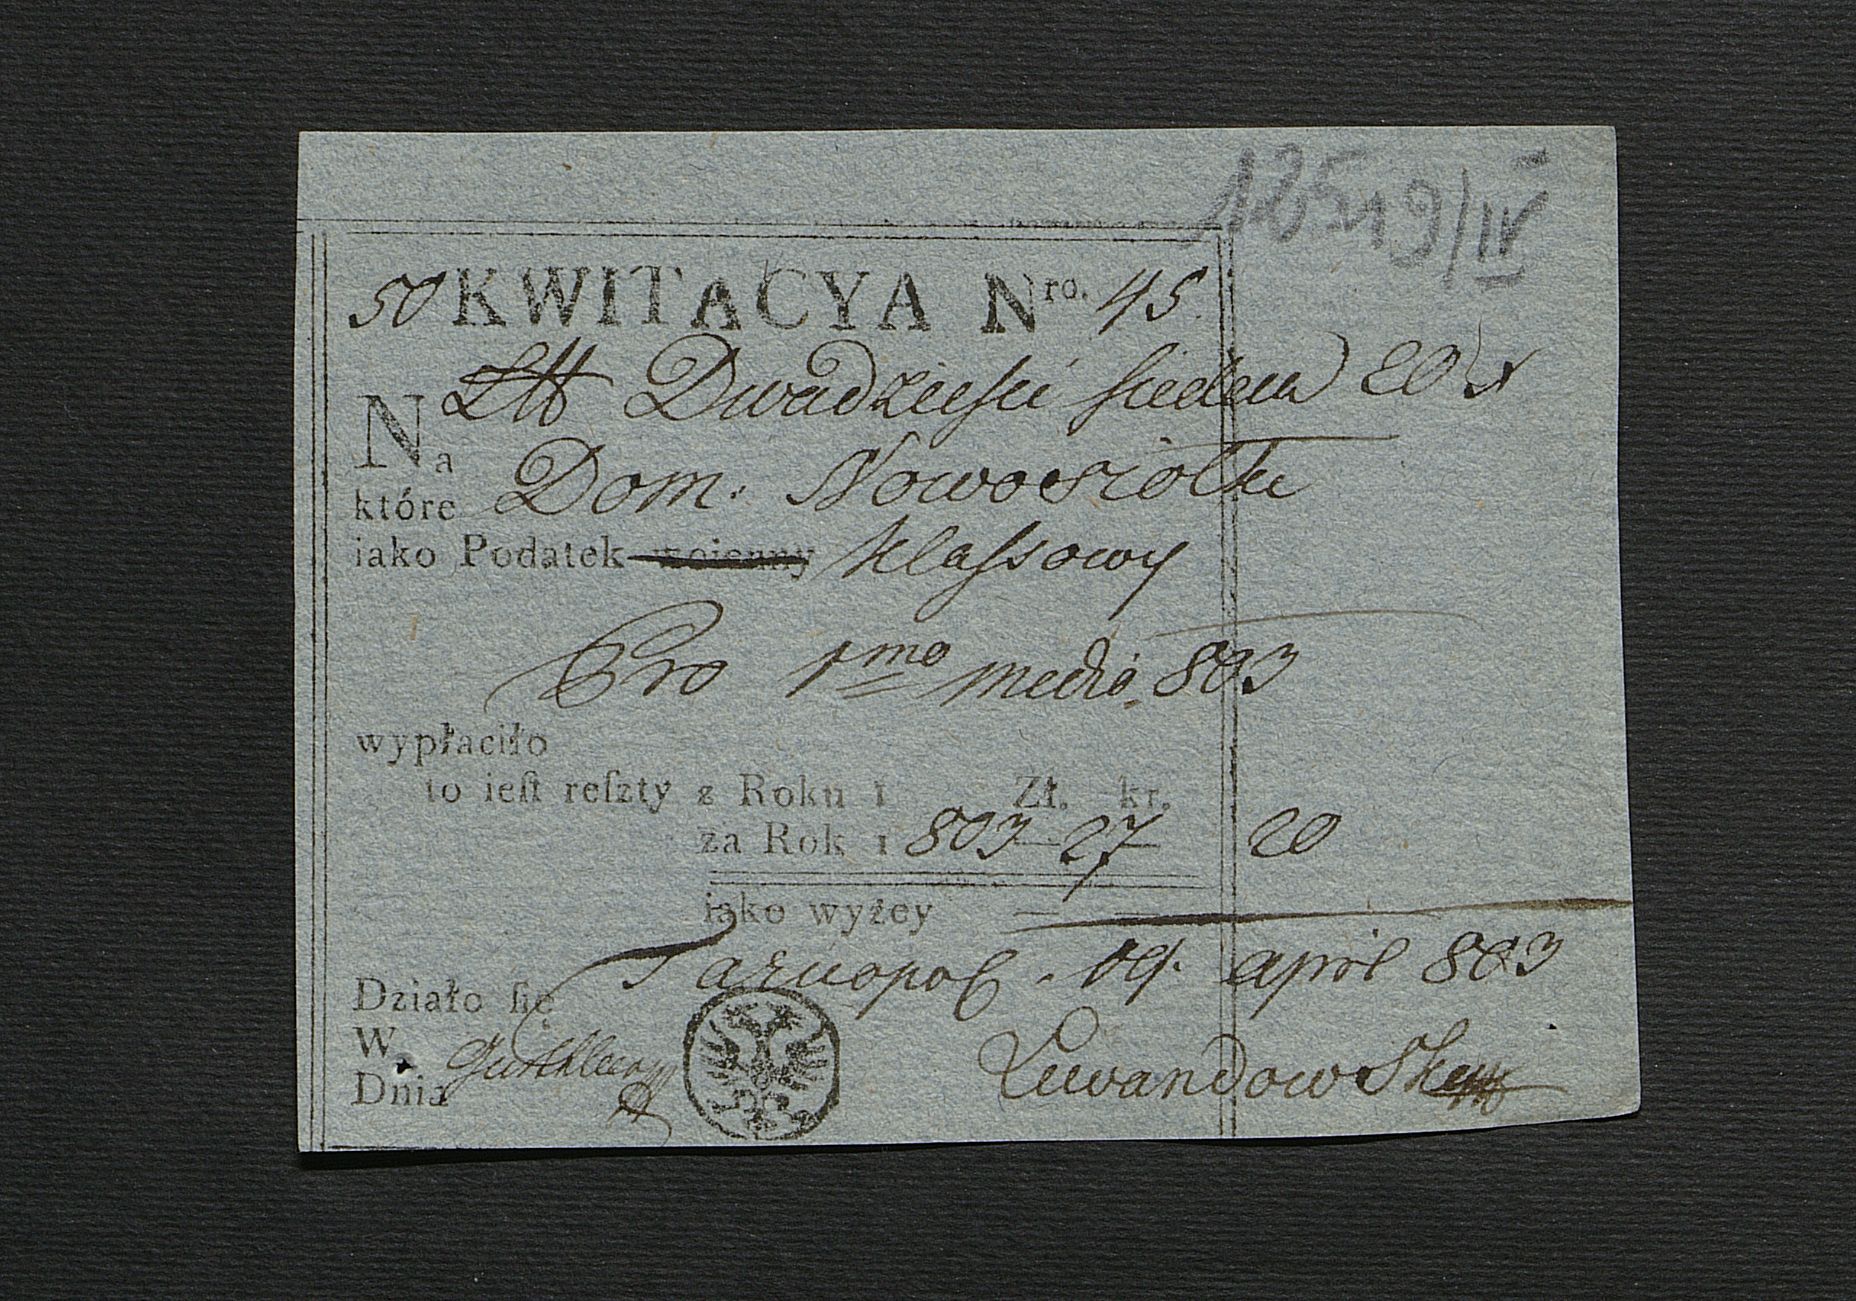 12519/IV
50 KWITACYA Nro. 45.
Na Dwadzieści siedem 20 x
które Dom. Nowosiołki
iako Podatek wojenny klaſsowy
Pro 1mo medio 803
wypłaciło
to ieſt reſzty z Roku 1 Zł. kr.
za Rok 1803 27 20
jako wyżey
Działo ſię Tarnopol. 19. april 803
W.
Dnia
Lewandowski